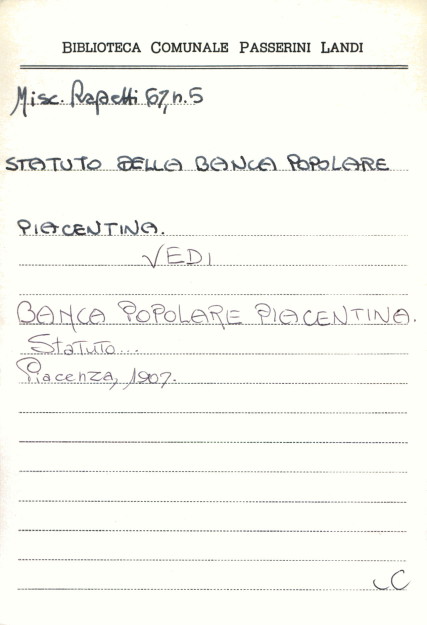 BIBLIOTECA COMUNALE PASSERINI LANDI
Misc. Rapetti 67, n. 5
STATUTO DELLA BANCA POPOLARE
PIACENTINA.
VEDI
BANCA POPOLARE PIACENTINA.
Statuto...
Piacenza, 1907.